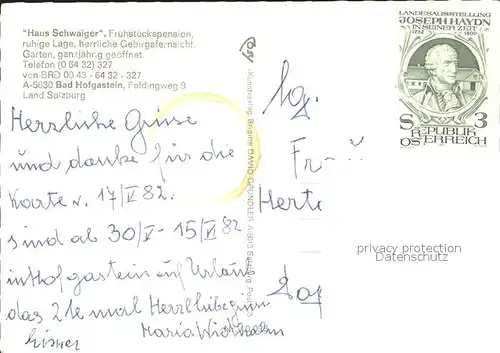 "Haus Schwaiger", Frühstückspension,
ruhige Lage, herrliche Gebirgsfernsicht.
Garten, ganzjährig geöffnet.
Telefon (0 64 32) 327
von BRD 00 43 - 64 32 - 327
A-5630 Bad Hofgastein, Feldingweg 9
Land Salzburg
Herzliche Grüsse
und danke für die
Karte v. 17/V 82.
sind ab 30/V - 15/VI 82
in Hofgastein auf Urlaub
das 2te mal Herzliche
Maria
Kunstverlag Brigitte
LANDESAUSSTELLUNG
JOSEPH HAYDN
IN SEINER ZEIT
1732 1809
S 3
REPUBLIK
ÖSTERREICH
Fr
Herta
privacy protection
Datenschutz